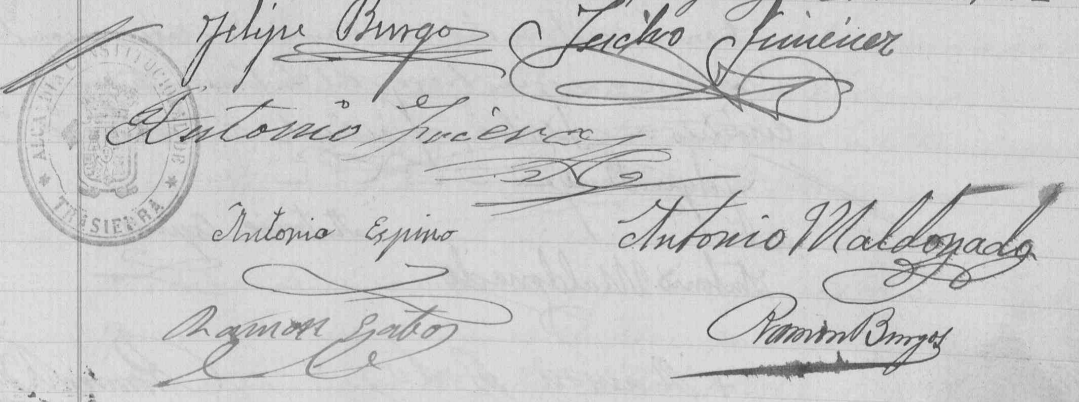 Felipe Burgo Isidro Jiménez
ALCALDIA CONSTITUCIONAL DE
TRASIERRA
Antonio
Antonio Espino Antonio Maldonado
Ramon Gatos Ramón Burgos